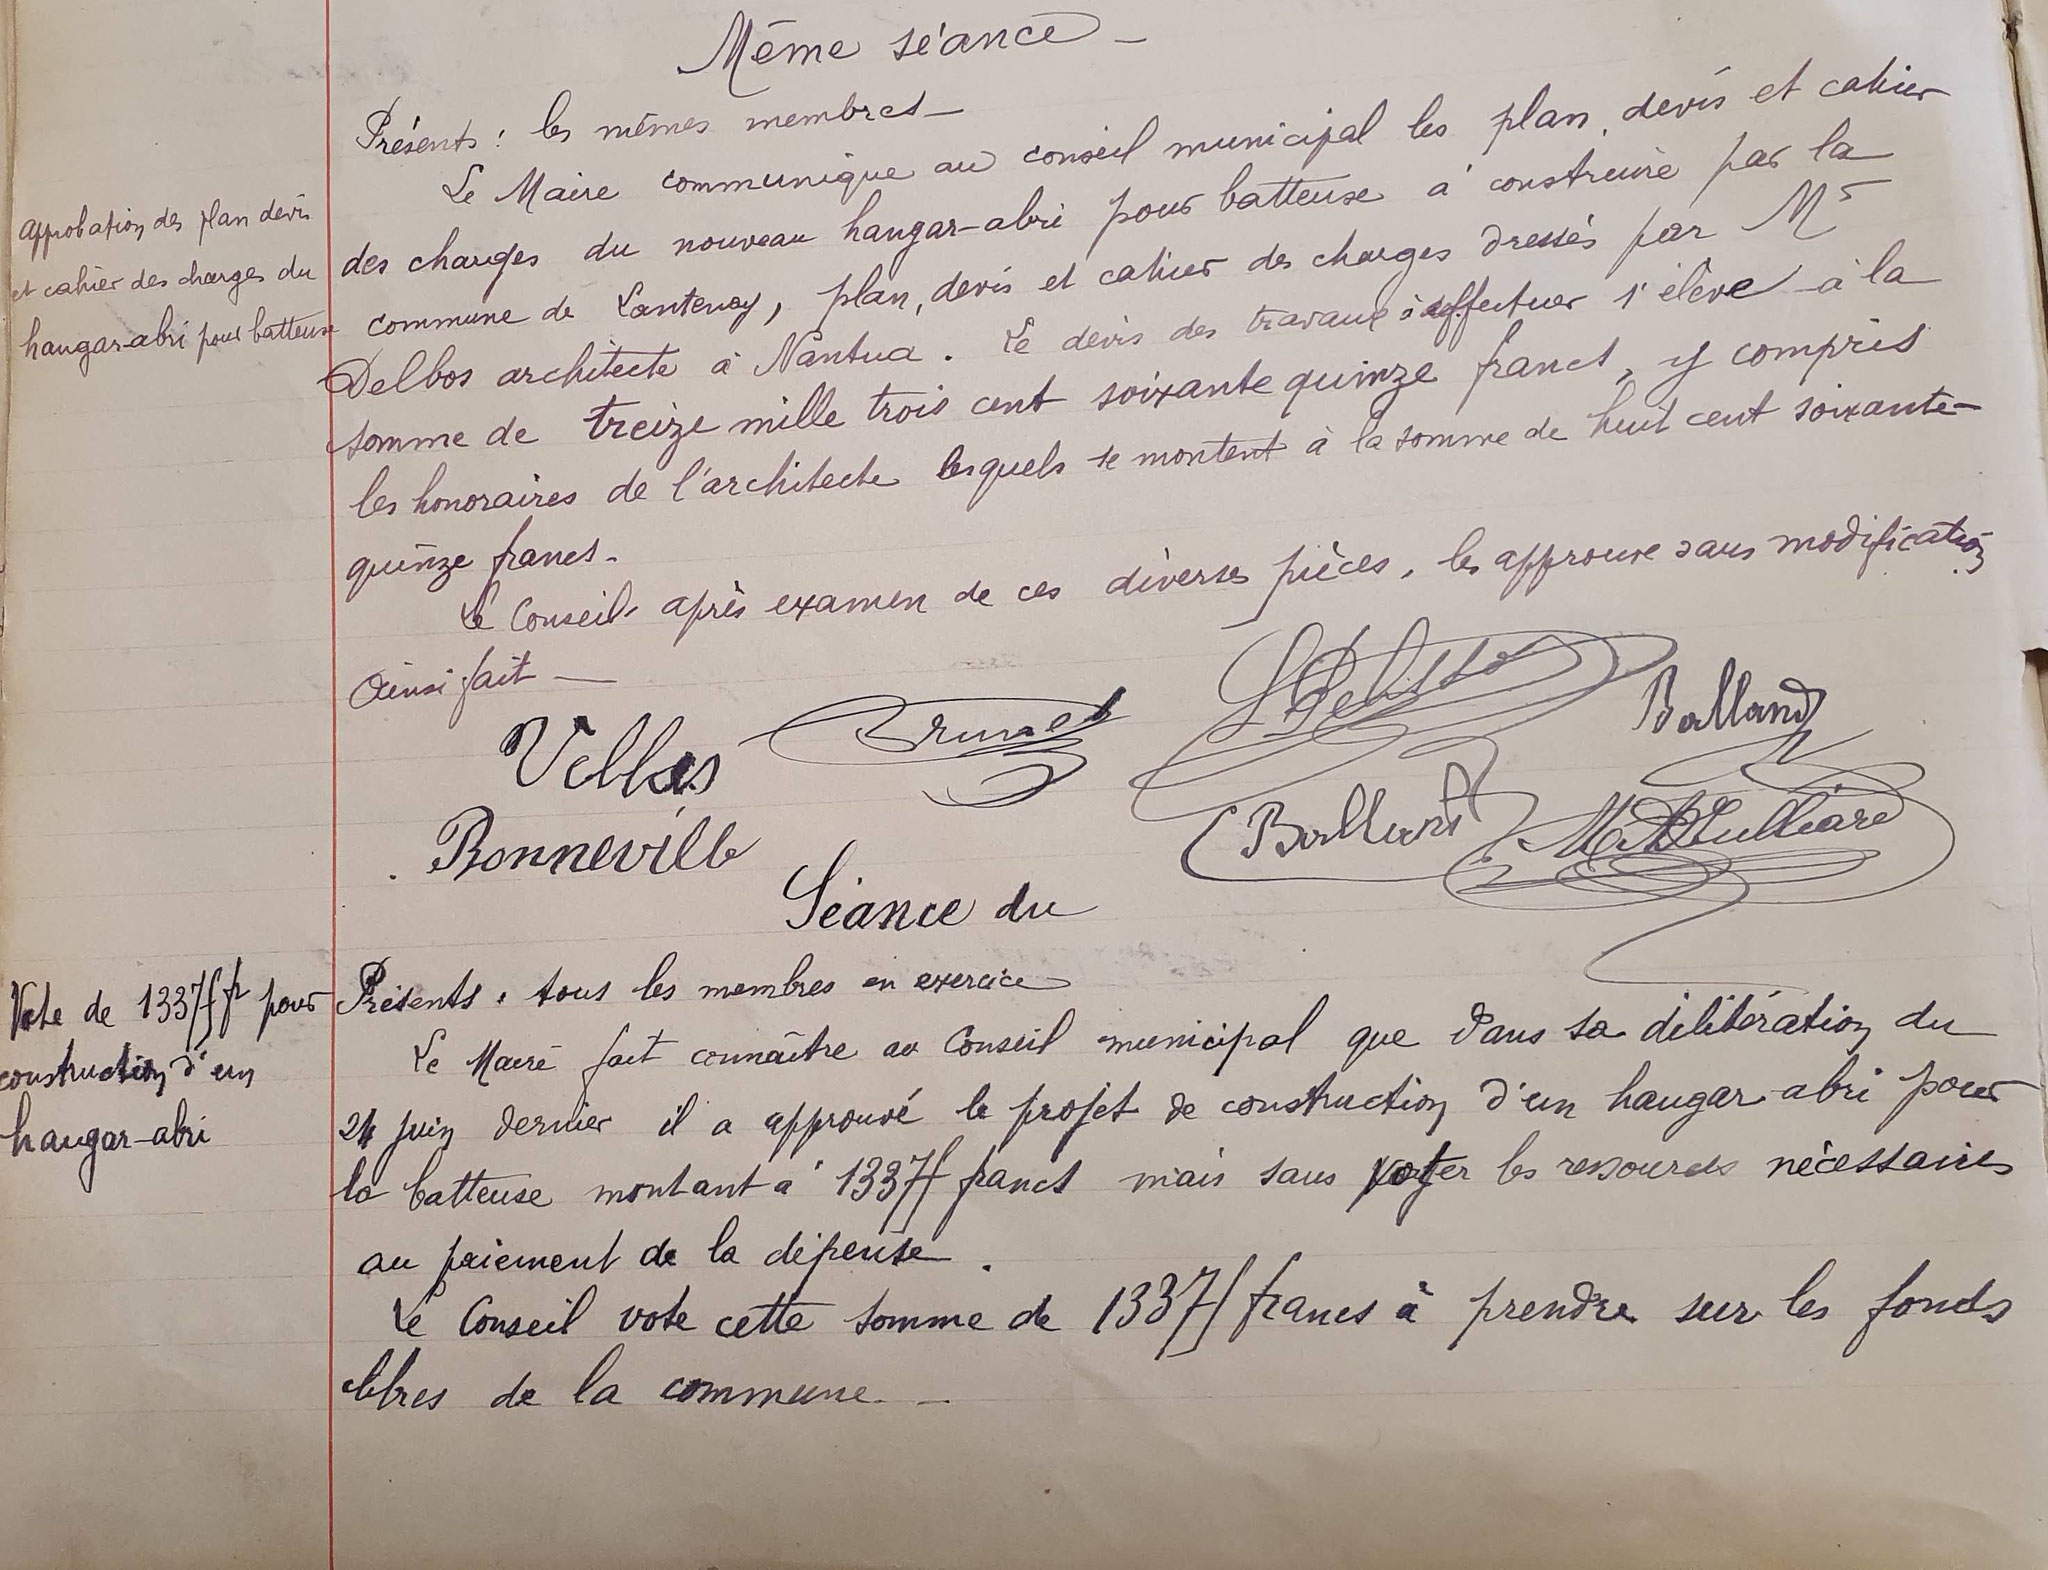 Même séance -
Présents : les mêmes membres -
Le Maire communique au conseil municipal les plan, devis et cahier
approbation des plan devis
et cahier des charges du
hangar-abri pour batteuse
des charges du nouveau hangar-abri pour batteuse à construire par la
commune de Lantenay, plan, devis et cahier des charges dressés par Mr
Delbos architecte à Nantua. Le devis des travaux à effectuer s'élève à la
somme de treize mille trois cent soixante quinze francs, y compris
les honoraires de l'architecte lesquels se montent à la somme de huit cent soixante-
quinze francs.
Le Conseil, après examen de ces diverses pièces, les approuve sans modification
Ainsi fait -
Brunet
Balland
Bonneville
Balland
Séance du
Vote de 13375 fr pour
construction d'un
hangar-abri
Présents : tous les membres en exercice
Le Maire fait connaître au Conseil municipal que dans sa délibération du
24 juin dernier il a approuvé le projet de construction d'un hangar-abri pour
la batteuse montant à 13375 francs mais sans voter les ressources nécessaires
au paiement de la dépense.
Le Conseil vote cette somme de 13375 francs à prendre sur les fonds
libres de la commune. -